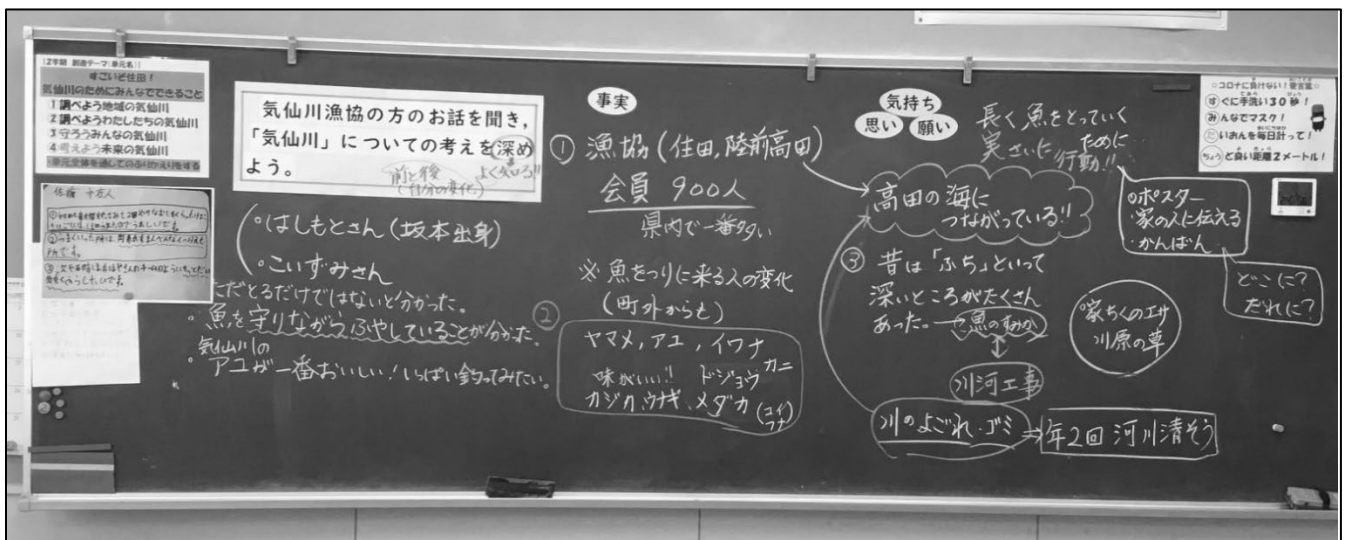 [2学期 創造テーマ(単元名)]
すごいぞ住田!
気仙川のためにみんなでできること
1 調べよう地域の気仙川
2 調べようわたしたちの気仙川
3 守ろうみんなの気仙川
4 考えよう未来の気仙川
・単元全体を通してのふりかえりをする
気仙川漁協の方のお話を聞き,
「気仙川」についての考えを深め
よう。
前と後
(自分の変化)
よく知ろう!!
。はしもとさん(坂本出身)
。こいずみさん
ただとるだけではないと分かった。
。魚を守りながらふやしていることが分かった。
。気仙川の
アユが一番おいしい!いっぱい釣ってみたい。
事実
① 漁協(住田,陸前高田)
会員 900人
県内で一番多い
※ 魚をつりに来る人の変化
(町外からも)
②
ヤマメ,アユ,イワナ
味がいい!! ドジョウ カニ
カジカ,ウナギ,メダカ(コイ フナ)
気持ち
思い 願い
長く魚をとっていく
ために…
実さいに行動!!
高田の海に
つながっている!!
③ 昔は「ふち」といって
深いところがたくさん
あった。
魚のすみか
河川工事
川のよごれ・ゴミ
⇒年2回 河川清そう
。家ちくのエサ
川原の草
。ポスター
・家の人に伝える
・かんばん
どこに?
だれに?
☆コロナに負けない!愛言葉☆
すぐに手洗い30秒!
みんなでマスク!
たいおんを毎日計って!
ちょうど良い距離2メートル!